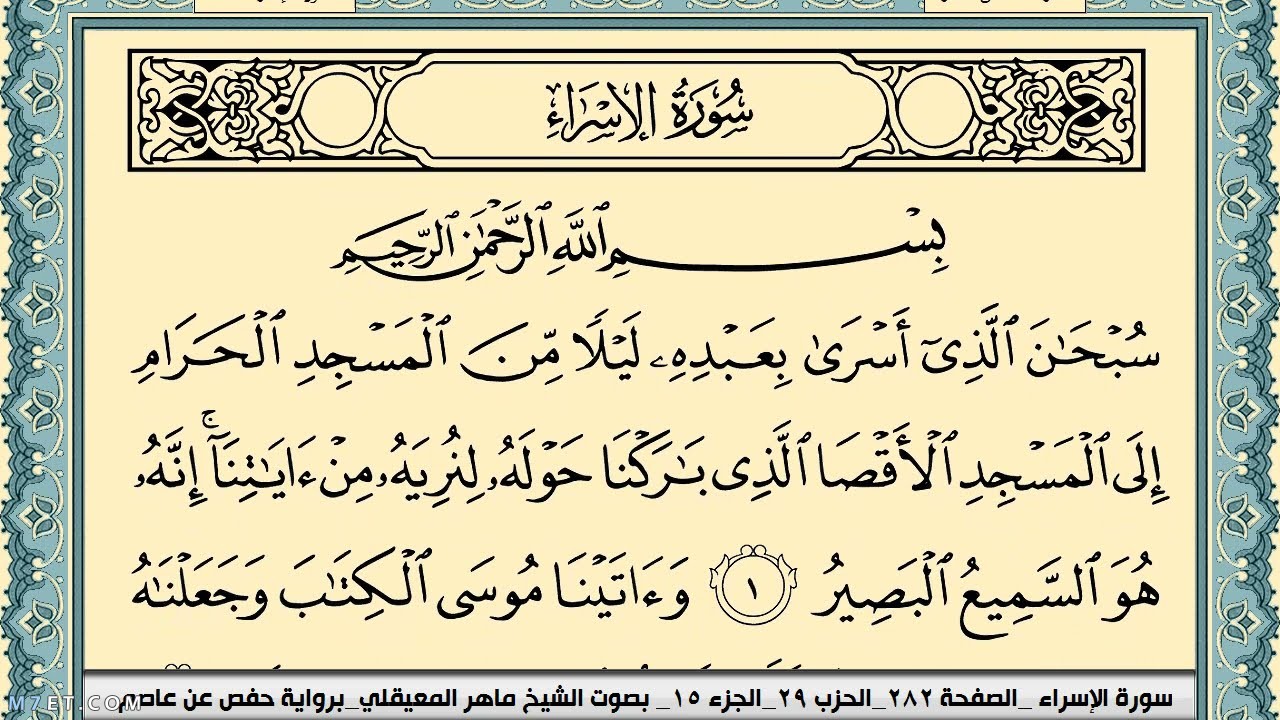 سُورَةُ الإِسْرَاءِ
بِسْمِ ٱللَّهِ ٱلرَّحْمَٰنِ ٱلرَّحِيمِ
سُبْحَٰنَ ٱلَّذِىٓ أَسْرَىٰ بِعَبْدِهِۦ لَيْلًا مِّنَ ٱلْمَسْجِدِ ٱلْحَرَامِ
إِلَى ٱلْمَسْجِدِ ٱلْأَقْصَا ٱلَّذِى بَٰرَكْنَا حَوْلَهُۥ لِنُرِيَهُۥ مِنْ ءَايَٰتِنَآ ۚ إِنَّهُۥ
هُوَ ٱلسَّمِيعُ ٱلْبَصِيرُ ١ وَءَاتَيْنَا مُوسَى ٱلْكِتَٰبَ وَجَعَلْنَٰهُ
سورة الإسراء _الصفحة ٢٨٢_الحزب ٢٩_الجزء ١٥_ بصوت الشيخ ماهر المعيقلي_برواية حفص عن عاصم
MZET.COM